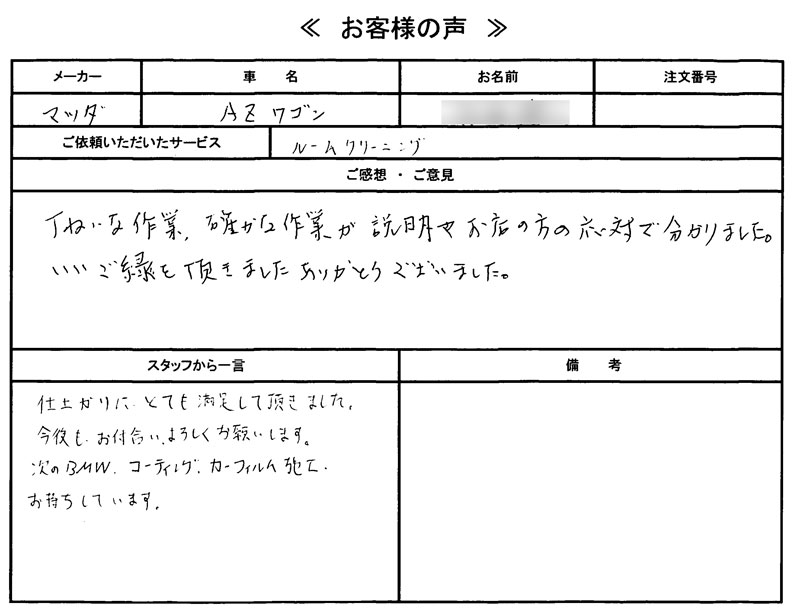 ≪ お客様の声 ≫
メーカー 車 名 お名前 注文番号
マツダ AZワゴン
ご依頼いただいたサービス ルームクリーニング
ご感想 ・ ご意見
丁ねいな作業、確かな作業が説明やお店の方の応対で分かりました。
いいご縁を頂きましたありがとうございました。
スタッフから一言 備 考
仕上がりに、とても満足して頂きました。
今後も、お付合い、よろしくお願いします。
次のBMW、コーティング、カーフィルム施工、
お待ちしています。